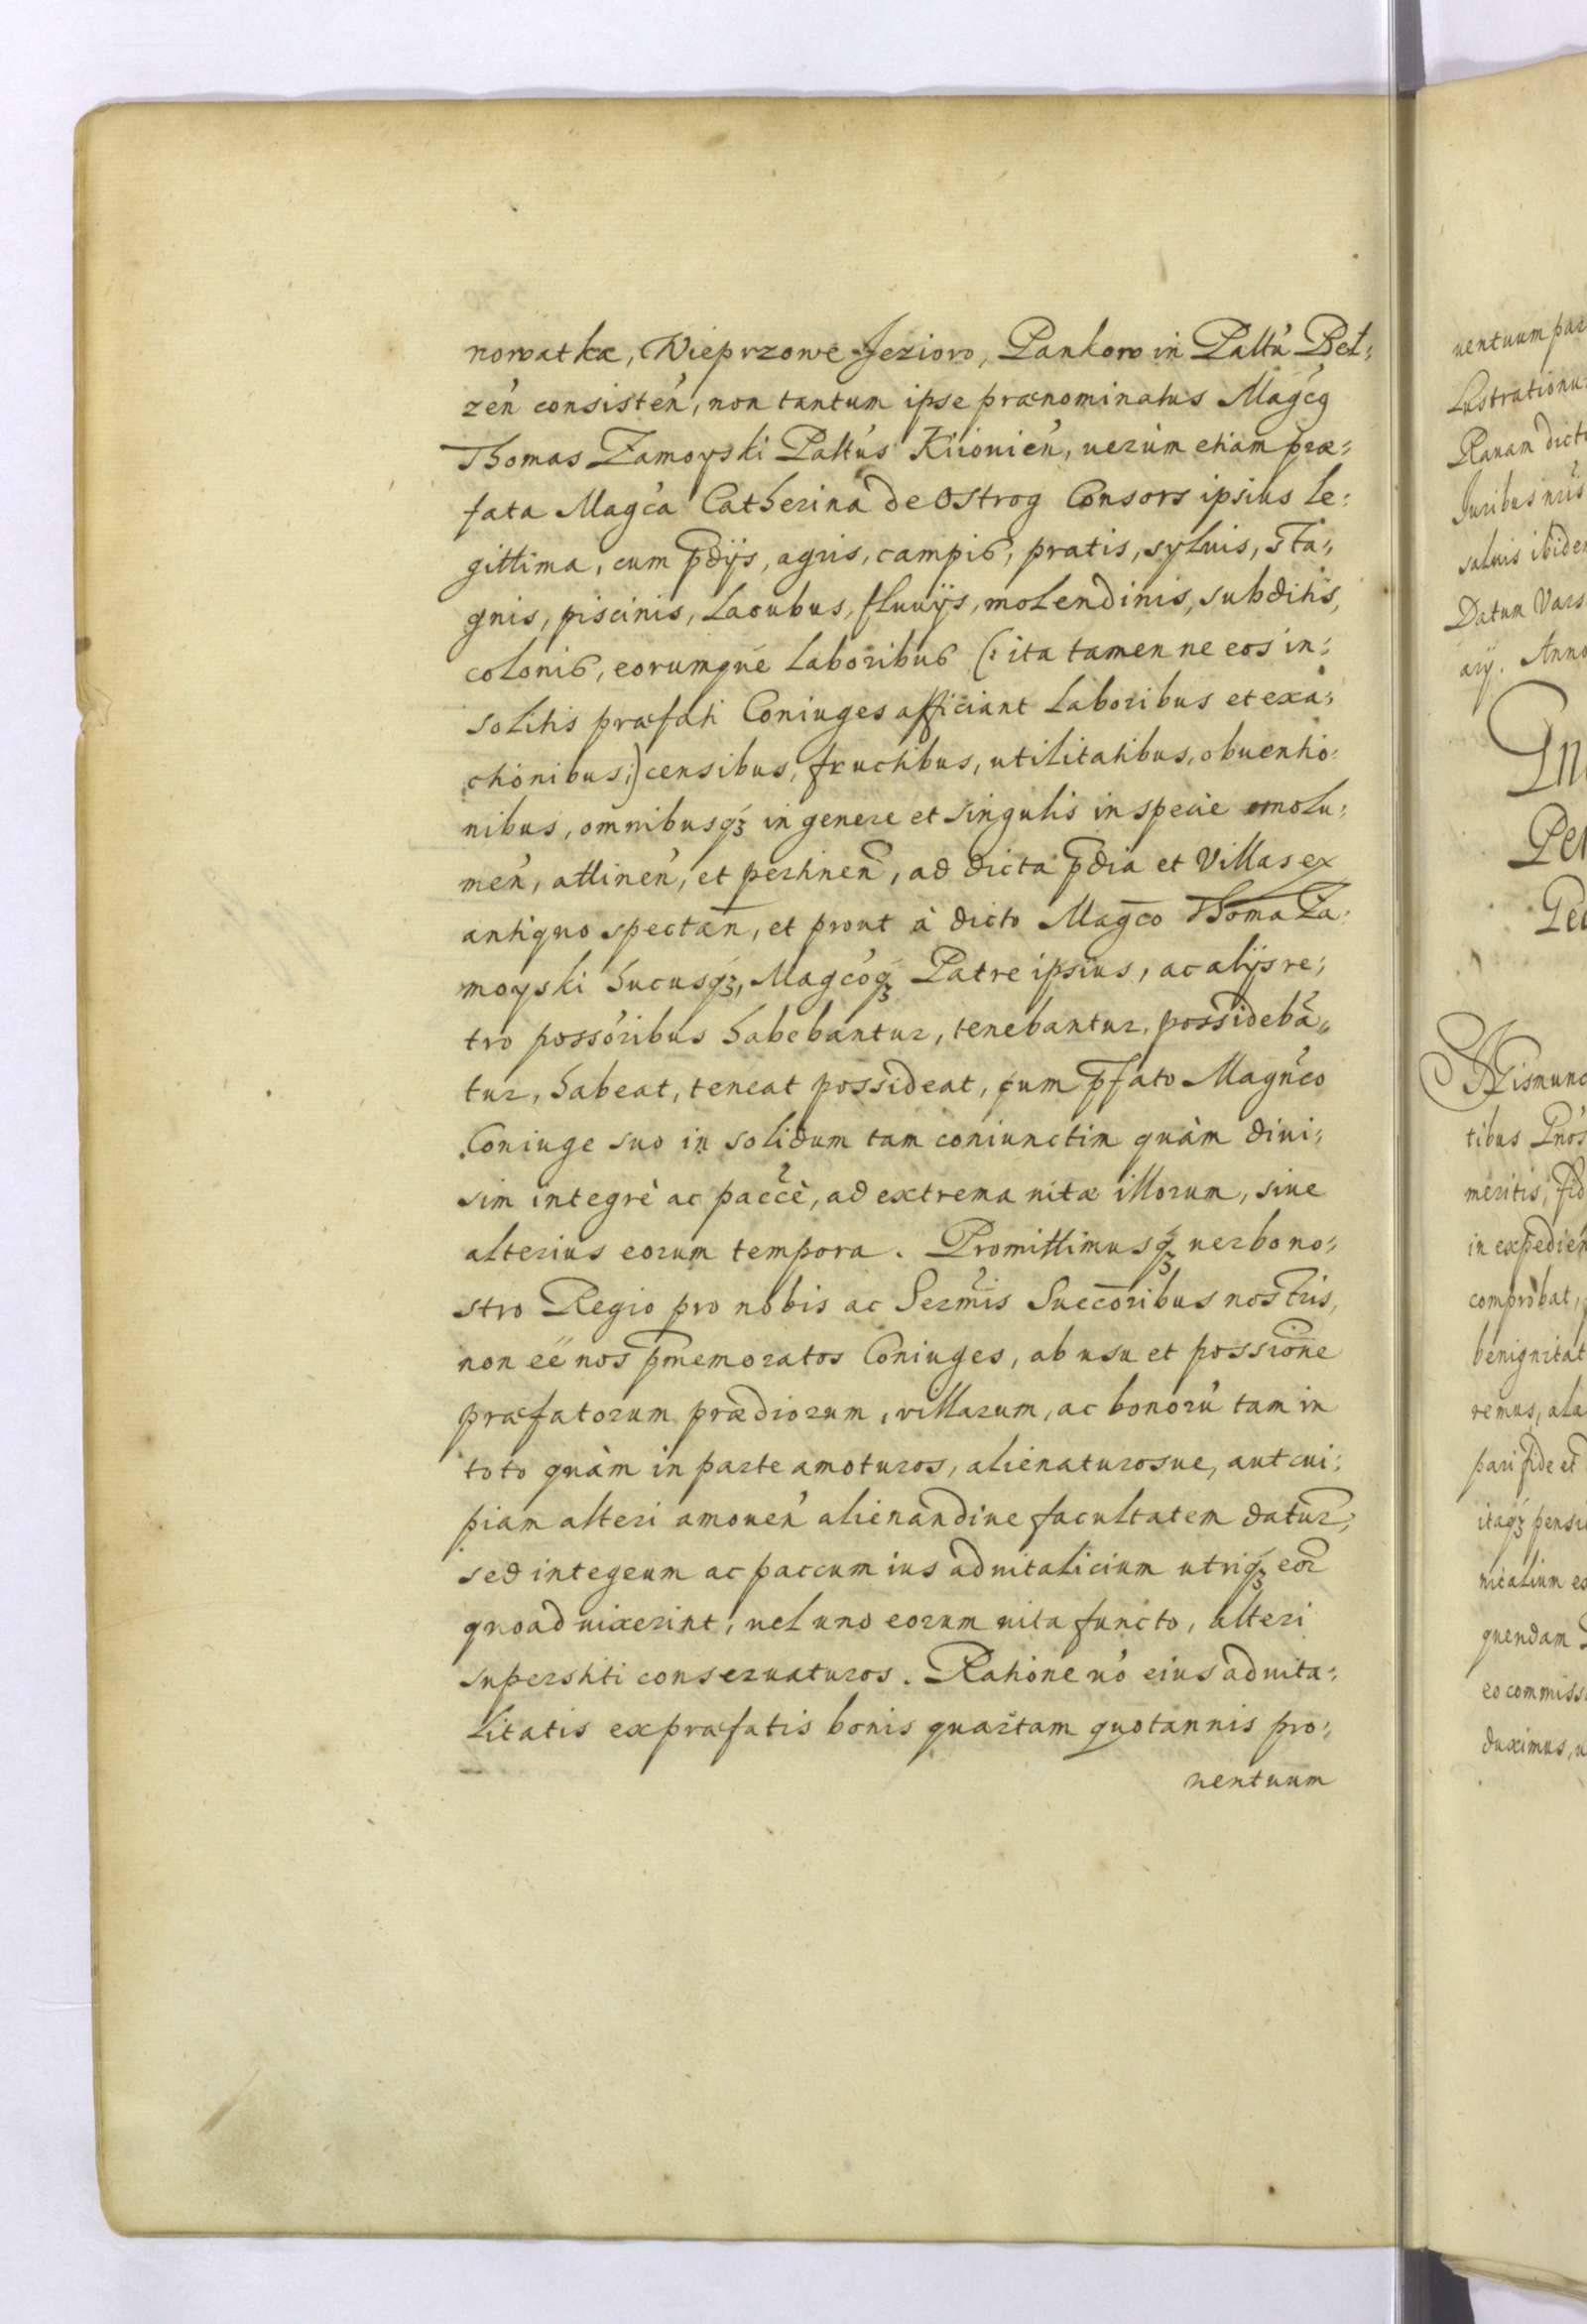 nowatka, Wieprzowe Jezioro, Pankow in Palltu Bel:
zen consisten, non tantum ipse prænominatus Magcq
Thomas Zamoyski Pallus Kiiouien, uerùm etiam præ:
fata Magca Catherina de Ostrog Consors ipsius le:
gittima, cum pdijs, agris, campis, pratis, syluis, sta:
gnis, piscinis, lacubus, fluuijs, molendinis, subditis,
colonis, eorumque laboribus (: ita tamen ne eos in:
solitis præfati Coniuges afficiant laboribus et exa:
ctionibus :) censibus, fructibus, utilitatibus, obuentio:
nibus, omnibusq3 in genere et singulis in specie emolu:
men, attinen, et pertinen, ad dicta pdia et Villas ex
antiquo spectan, et prout à dicto Magco Thoma Za:
moyski hucusq3, Magcoq3 Patre ipsius, ac alijs re:
tro possoribus habebantur, tenebantur, possidebã,,
tur, habeat, teneat possideat, cum pfato Magnco
Coniuge suo in solidum tam coniunctim quàm diui:
sim integrè ac paccè, ad extrema uitæ illorum, siue
alterius eorum tempora. Promittimusq3 uerbo no:
stro Regio pro nobis ac Sermis Succoribus nostris,
non eé nos pmemoratos Coniuges, ab usu et possione
præfatorum prædiorum, villarum, ac bonorũ tam in
toto quàm in parte amoturos, alienaturosue, aut cui:
piam alteri amouen alienandiue facultatem datur,
sed integeum ac paccum ius aduitalicium utriq3 eor
quoad uixerint, uel uno eorum uita functo, alteri
superstiti conseruaturos. Ratione uo eius aduita:
litatis ex præfatis bonis quartam quotannis pro:
uentuum
uentuum par
Lustrationu
Rauam dict
Juribus nris
saluis ibide
Datum Vars
arij. Anno
Per
tibus Pnos
meritis, fid
in expedien
comprobat,
benignitat
remus, ala
pari fide et
itaq3 pensi
quendam
eo commiss
duximus, u